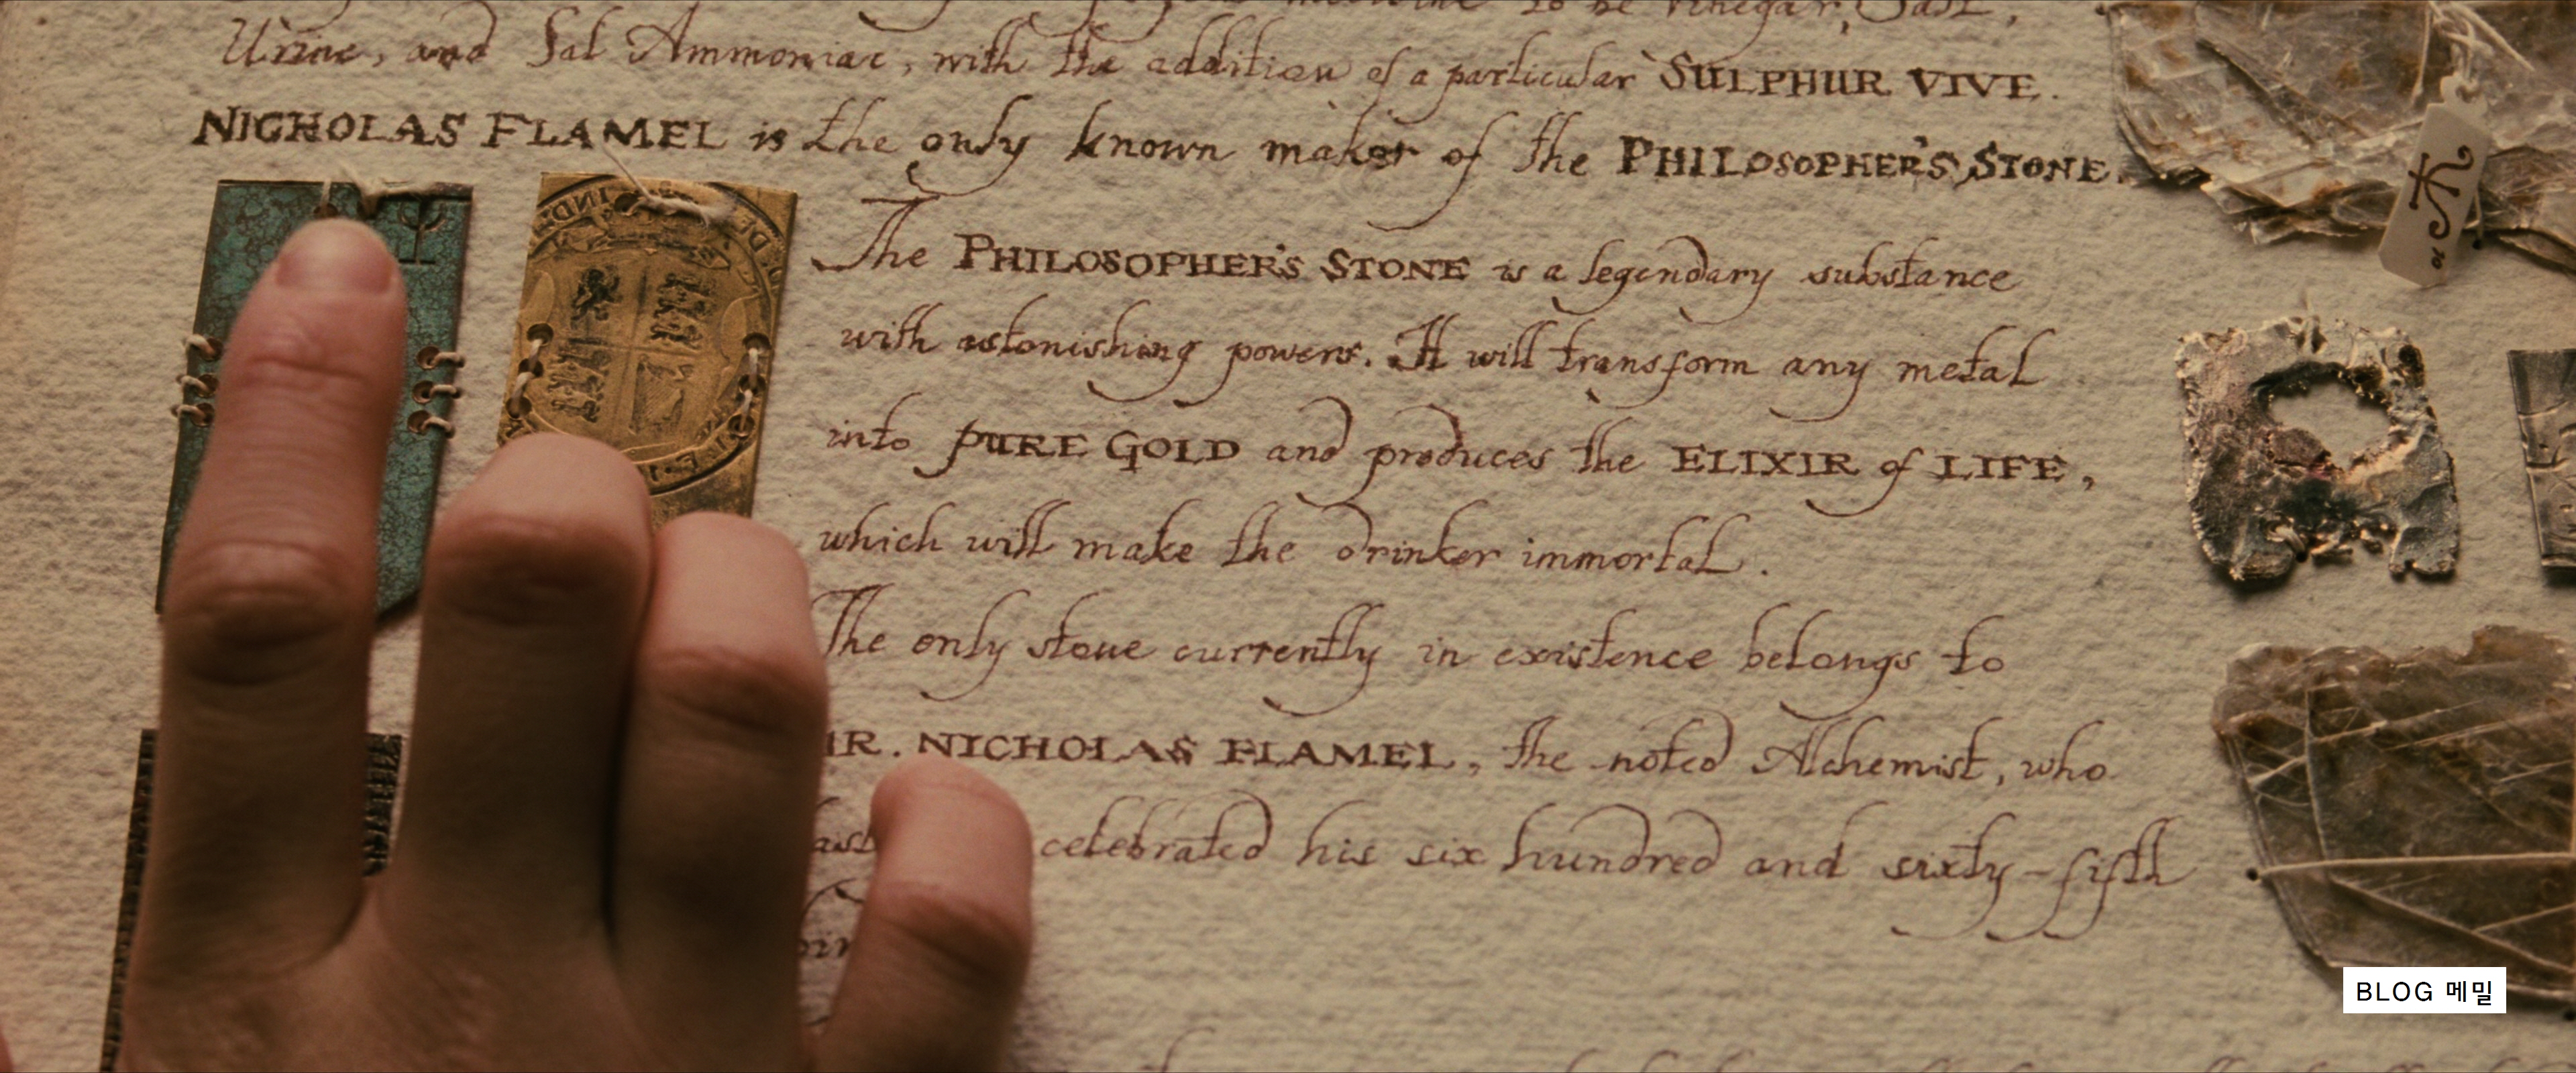 to be vinegar, Salt,
Urine, and Sal Ammoniac, with the addition of a particular SULPHUR VIVE.
NICHOLAS FLAMEL is the only known maker of the PHILOSOPHER'S STONE.
The PHILOSOPHER'S STONE is a legendary substance
with astonishing powers. It will transform any metal
into PURE GOLD and produces the ELIXIR of LIFE,
which will make the drinker immortal.
The only stone currently in existence belongs to
MR. NICHOLAS FLAMEL, the noted Alchemist, who
celebrated his six hundred and sixty-fifth
BLOG 메밀